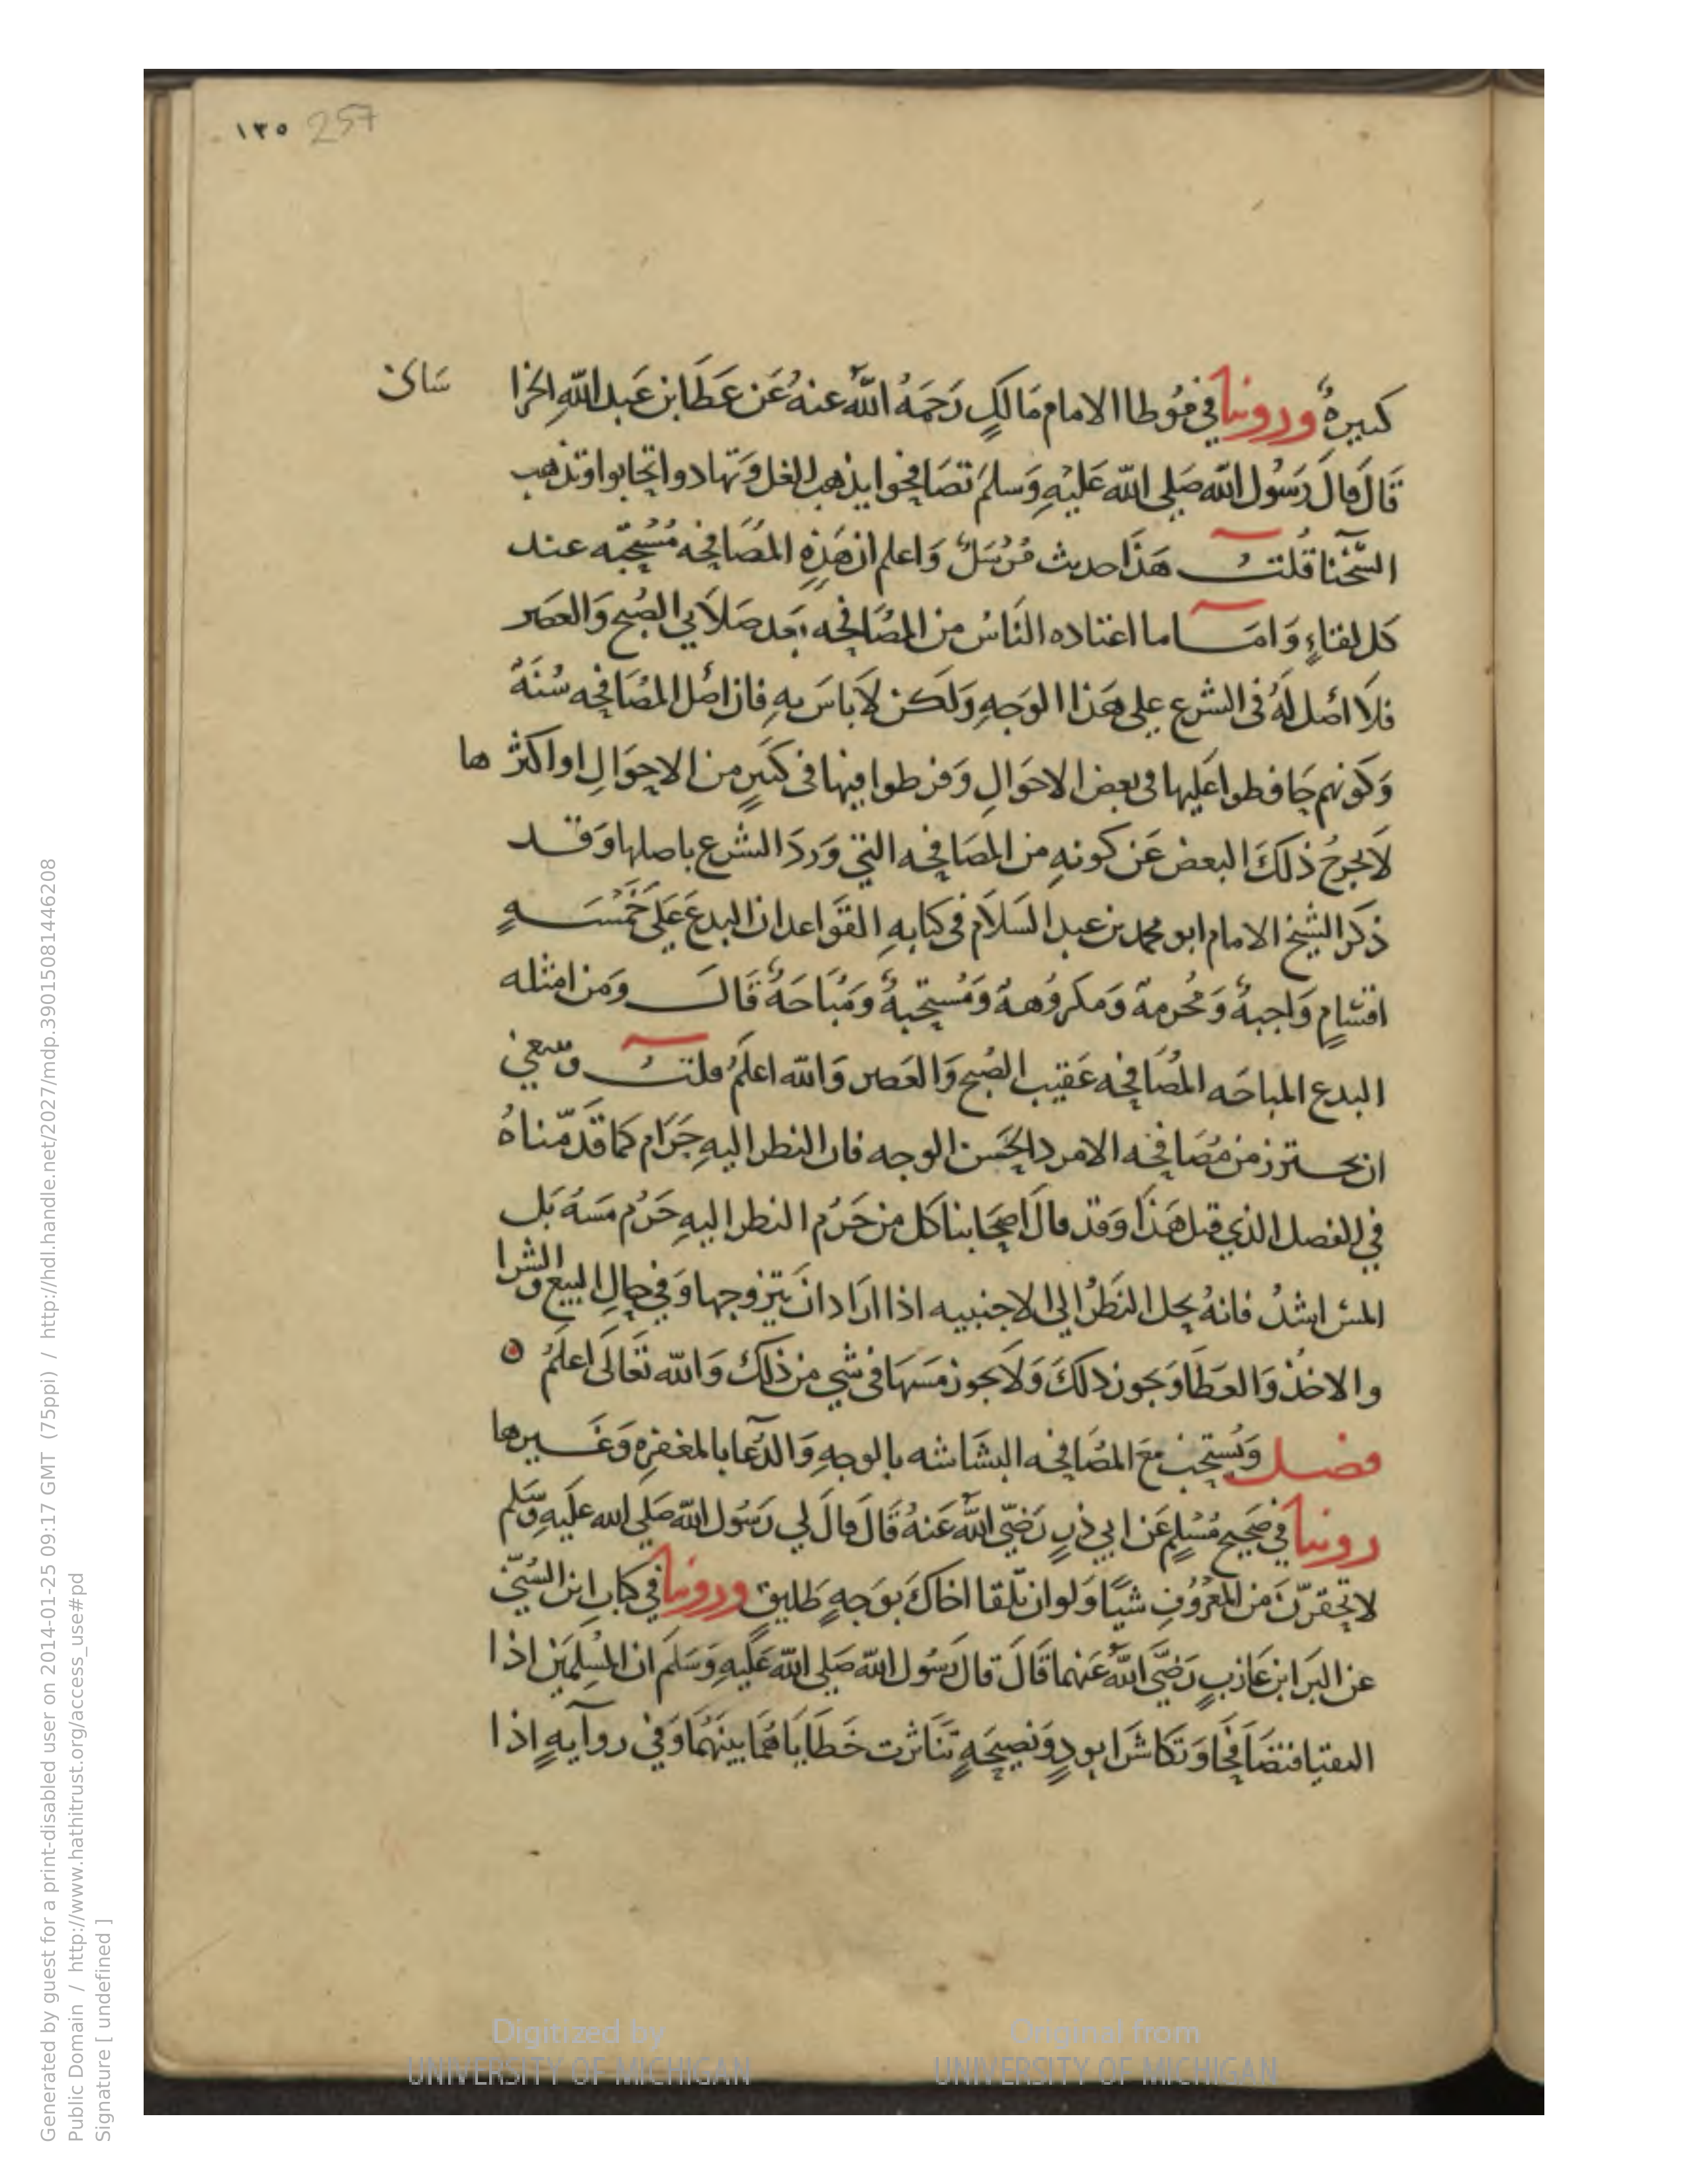 ١٣٥ 257
كبيرةٌ وروينا في مُوطا الامام مَالكٍ رَحمَهُ اللهُ عنهُ عَن عَطَا بن عَبد اللهِ الخرا سَانى
قَالَ قالَ رَسُول الله صَلى الله عَليْهِ وَسلمَ تصَافحُوا يذهب الغل وَتهادوا تحابوا وتذهب
الشحْنا قلتُ هَذَا حديث مُرْسَلٌ وَاعلم ان هَذِهِ المصَافحه مُسْتحبّه عند
كل لقاءٍ وَامَا ما اعتاده الناسُ من المصَافحه بَعد صَلاَتي الصُبح وَالعصر
فلا اصْل لهُ فى الشرع على هَذا الوَجهِ وَلكن لاَ باسَ بهِ فان اصْل المصَافحه سُنَةٌ
وَكونهم حَافظوا عَليها فى بعض الاحوَالِ وَفرطوا فيها فى كثيرٍ من الاحوَالِ او اكثر ها
لاَ يخرجُ ذلكَ البعض عَن كونهِ من المصَافحه التي وَردَ الشرع باصلها وَقد
ذكر الشيخ الامام ابو محمد بن عبد السَلاَم فى كتابهِ القوَاعد ان البدعَ عَلى خَمْسَهِ
اقسَامٍ وَاجبهٌ وَمُحرمهٌ وَمكروُههٌ وَمُسْتحَبهٌ وَمُبَاحَهٌ قَالَ وَمن امثله
البدع المباحَه المصَافحه عَقيب الصُبح وَالعَصر وَالله اعلمُ قلتُ وينبغي
ان يحترز من مُصَافحَه الامرد الحَسَن الوجه فان النظر اليهِ حَرَام كما قدّمناهُ
في الفصل الذي قبل هَذَا وَقد قالَ اصحَابنا كل من حَرُم النظر اليهِ حَرُم مَسهُ بَل
المس اشدُ فانهُ يحل النَظرُ الي الاجنبيه اذا ارَادَ انَ يَتزوجها وَفي حالِ البيع والشرا
والاخذ وَالعَطَا وَيجوز ذلكَ وَلاَ يجوز مَسهَا فى شي من ذلك وَالله تعَالى اعلمُ
فصل وَيُستحب مَعَ المصَافحه البشَاشه بالوجهِ وَالدُعَا بالمغفرهِ وَغيرها
روينا في صَحيح مُسْلمٍ عَن ابي ذرٍ رَضيَ اللهُ عَنهُ قَالَ قالَ لي رَسُول الله صَلى الله عَليهِ وَسَلم
لا تحقرنّ مَن المعْروُفِ شيًا وَلو ان تلقا اخاكَ بوَجهٍ طليقٍ وروينا في كتابِ ابن السُنيّ
عن البَرا ابن عَازبٍ رَضيَ اللهُ عَنهما قَالَ قالَ رَسُول الله صَلى الله عَليهِ وَسَلمَ ان المسْلمَين اذا
التقيا فتصَافحَا وَتكاشَرا بودٍ وَنصيحَهٍ تنَاثرت خَطايَاهُمَا بينَهُمَا وَفي روايهٍ اذا
Generated by guest for a print-disabled user on 2014-01-25 09:17 GMT (75ppi) / http://hdl.handle.net/2027/mdp.39015081446208
Public Domain / http://www.hathitrust.org/access_use#pd
Signature [ undefined ]
Digitized by
UNIVERSITY OF MICHIGAN
Original from
UNIVERSITY OF MICHIGAN